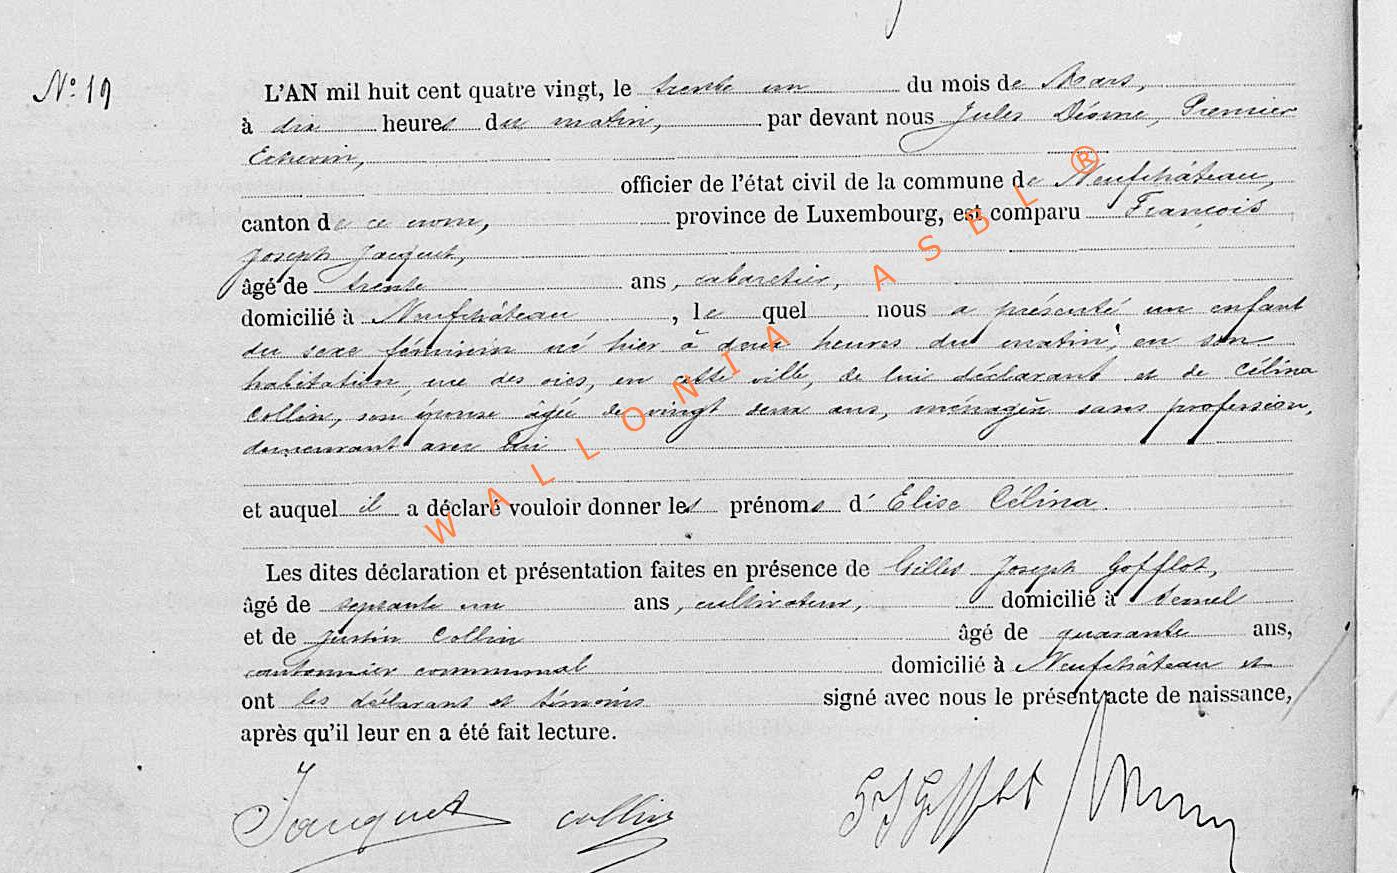 N° 19
L'AN mil huit cent quatre vingt, le trente un du mois de Mars,
à dix heures du matin, par devant nous Jules Premier
Echevin,
officier de l'état civil de la commune de Neufchâteau,
canton de ce nom, province de Luxembourg, est comparu François
Joseph Jacquet,
âgé de trente ans, cabaretier,
domicilié à Neufchâteau, le quel nous a présenté un enfant
du sexe féminin né hier à deux heures du matin, en son
habitation, rue des oies, en cette ville, de lui déclarant et de Célina
Collin, son épouse âgée de vingt deux ans, sans profession,
demeurant avec lui
et auquel il a déclaré vouloir donner les prénoms d'Elise Célina.
Les dites déclaration et présentation faites en présence de Gilles Joseph Gofflot,
âgé de septante un ans, cultivateur, domicilié à Semel
et de Justin Collin âgé de quarante ans,
cantonnier communal domicilié à Neufchâteau et
ont les déclarant et témoins signé avec nous le présent acte de naissance,
après qu'il leur en a été fait lecture.
Jacquet Collin GJ Gofflot
WALLONIA ASBL ®